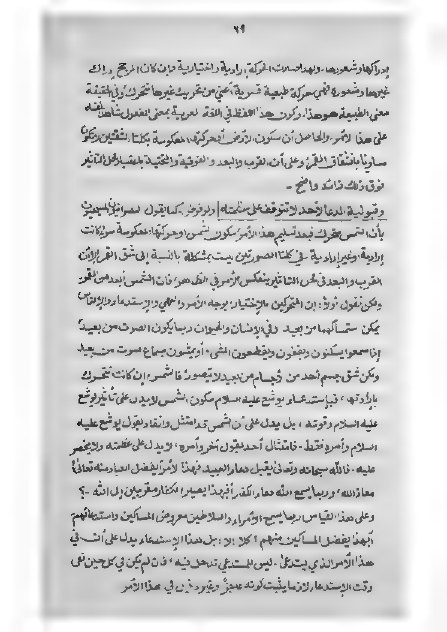 ٦٩
إدراكها وشعورها، ولهذا صارت الحركة إرادية واختيارية وإن كان المرجح إدراك
غيرها وشعوره فهي حركة طبيعية قسرية، أعني من تحريك غيرها تتحرك وفي الحقيقة
معنى الطبيعة هو هذا، وكون هذا اللفظ في اللغة العربية بمعنى المفعول شاهد
على هذا الأمر والحاصل أن سكون الأرض أو حركتها المعكوسة بكلتا الشقين
مساويًا بانشقاق القمر وعلى أن القرب والبعد والفوقية والتحتية بالمقدار محل التأثير
فوق ذلك فائدة واضح -
وقبولية الدعاء لأحد لا تتوقف على عظمته ولو فرض كما يقول
بأن الشمس تتحرك فبعد تسليم هذا الأمر سكون الشمس أو حركتها معكوسة سواء كانت
إرادية وغير إرادية في كلتا الصورتين ليست بمشكلة بالنسبة إلى شق القمر لأن
القرب والبعد في محل التأثير ينعكس الأمر في الظاهر فإن الشمس أبعد من القمر
ولكن نقول نوعًا: إن المتحركين بالاختيار بوجه الأمر والنهي والاستدعاء والالتماس
يمكن ستمساكهما من بعيد وفي الإنسان والحيوان ربما يكون الصوت من بعيد
إذا سمعوا يسكنون ويقفون ويقطعون الشيء أو يمشون بسماع صوت من بعيد
ولكن شق جسم أحد من أجسام من بعيد لا يتصور فالشمس إن كانت تتحرك
بإرادتها، فباستدعاء يوشع عليه السلام سكون الشمس لا يدل على تأثير يوشع
عليه السلام وقوته، بل يدل على أن الشمس قد امتثل وانقاد بقول يوشع عليه
السلام وأمره فقط. فامتثال أحد بقول آخر وأمره، لا يدل على عظمته ولا ينحصر
عليه. فالله سبحانه وتعالى يقبل دعاء العبيد فبهذا الأمر أيفضل العباد منه تعالى؟
معاذ الله! وربما يسمع الله دعاء الكفار أفبهذا يصير الكفار مقربين إلى الله -؟
وعلى هذا القياس ربما يسمع الأمراء والسلاطين معروض المساكين واستدعائهم
أفبهذا يفضل المساكين منهم؟ كلا! لا بل هذا الاستدعاء يدل على أن في
هذا الأمر الذي يستدعى، ليس للمستدعي تدخل فيه، فإن لم يكن في كل حين ففي
وقت الاستدعاء لازما يثبت كونه عاجزًا وغير دخيل في هذا الأمر